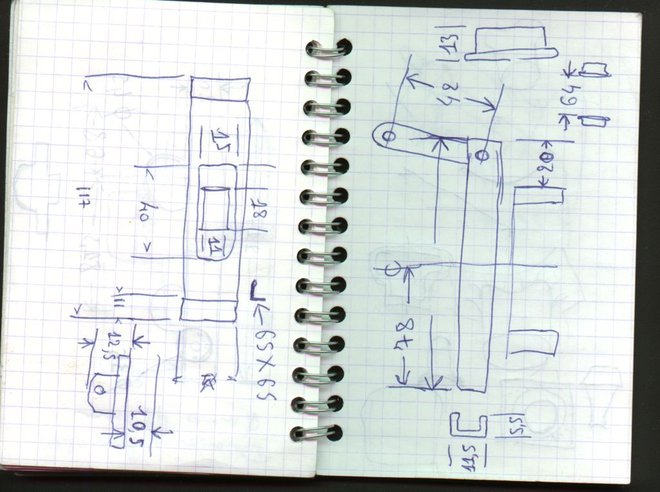 117
40
15
18
11
11
12,5
10,5
65 X 65
13
64
20
78
11,5
5,5